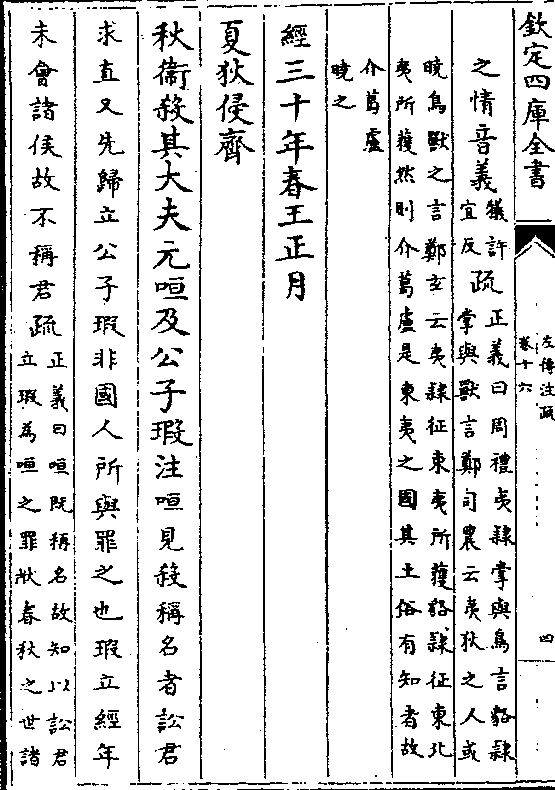 欽定四庫全書
左傳注疏
卷十六
四
之情音義犧許宜反疏正義曰周禮夷隸掌與鳥言貉隸
掌與獸言鄭司農云夷狄之人或
曉鳥獸之言鄭玄云夷隸征東夷所獲貉隸征東北
夷所獲然則介葛盧是東夷之國其土俗有知者故
介葛盧
曉之
經三十年春王正月
夏狄侵齊
秋衞殺其大夫元咺及公子瑕注咺見殺稱名者訟君
求直又先歸立公子瑕非國人所與罪之也瑕立經年
未會諸侯故不稱君疏正義曰咺既稱名故知以訟君
立瑕為咺之罪狀春秋之世諸